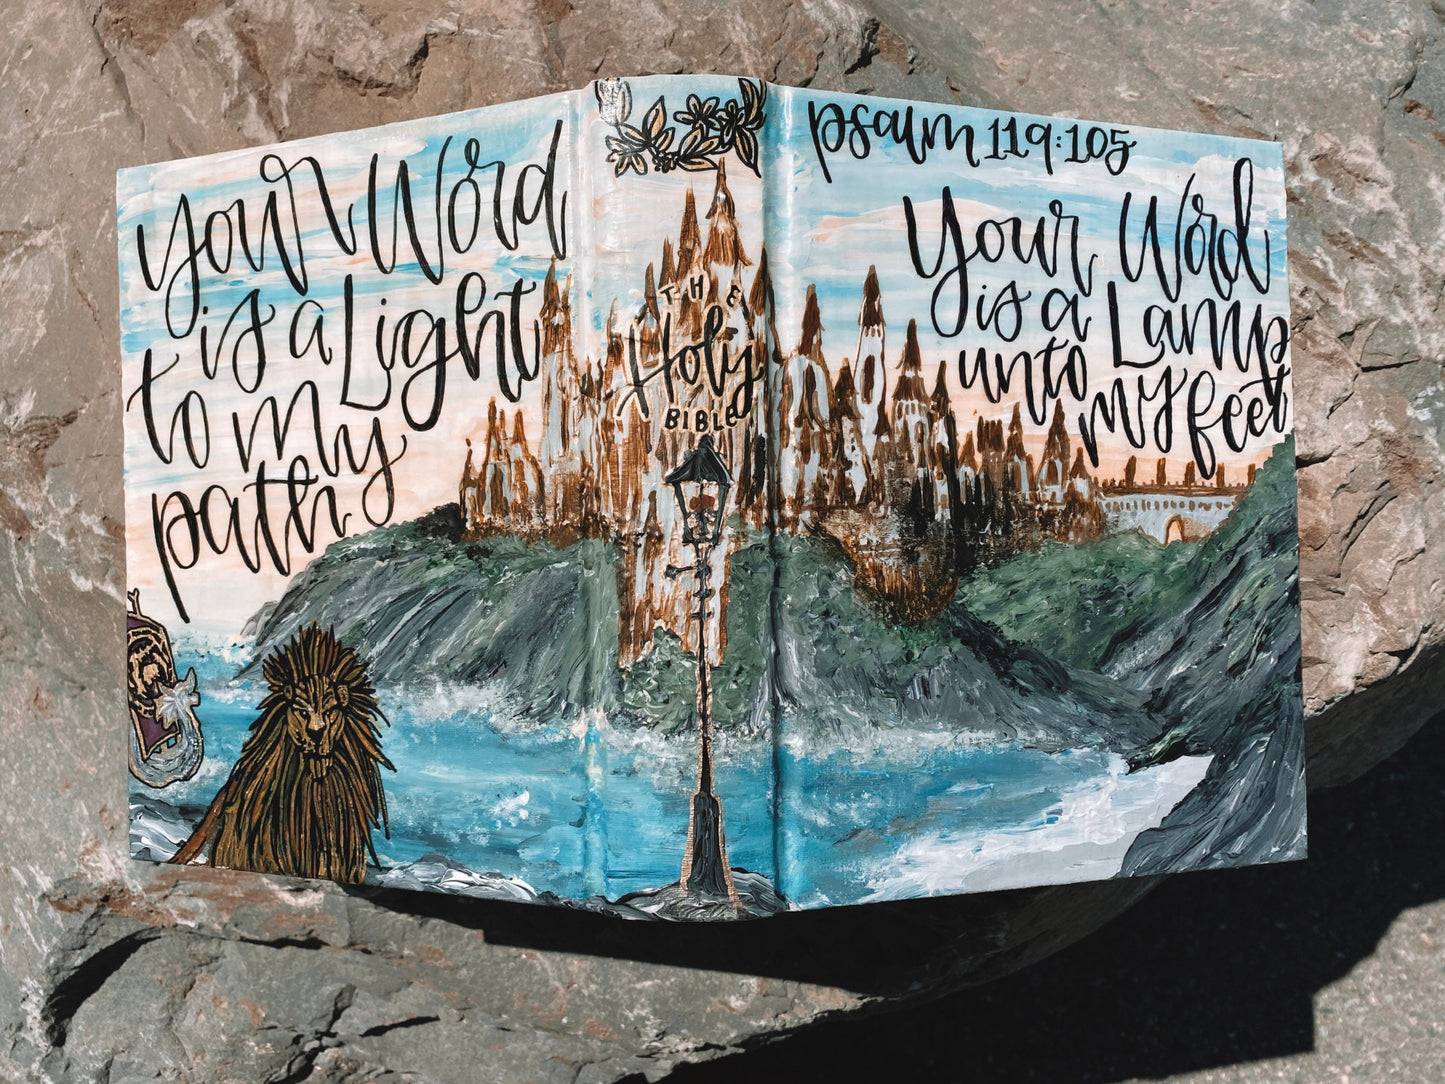 Your Word
is a Light
to my
path
THE
Holy
BIBLE
psalm 119:105
Your Word
is a Lamp
unto
my feet